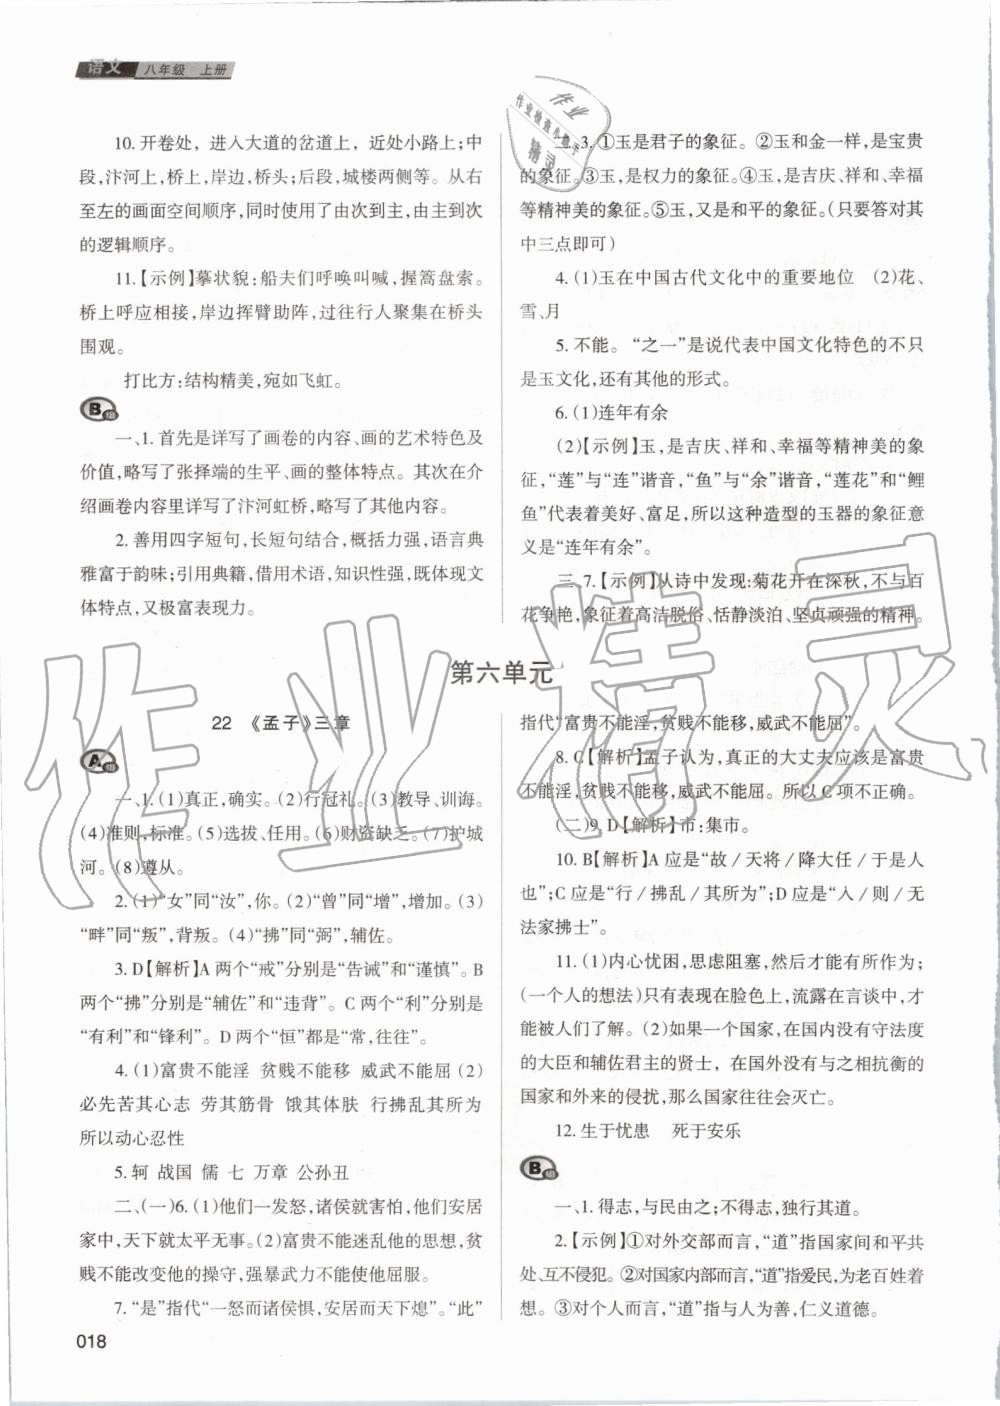 语文 八年级 上册
10. 开卷处，进入大道的岔道上，近处小路上;中
段,汴河上,桥上,岸边,桥头;后段,城楼两侧等。从右
至左的画面空间顺序,同时使用了由次到主,由主到次
的逻辑顺序。
11.【示例】摹状貌:船夫们呼唤叫喊,握篙盘索。
桥上呼应相接,岸边挥臂助阵,过往行人聚集在桥头
围观。
打比方:结构精美,宛如飞虹。
B组
一、1. 首先是详写了画卷的内容、画的艺术特色及
价值,略写了张择端的生平、画的整体特点。其次在介
绍画卷内容里详写了汴河虹桥,略写了其他内容。
2. 善用四字短句,长短句结合,概括力强,语言典
雅富于韵味;引用典籍,借用术语,知识性强,既体现文
体特点,又极富表现力。
二、3. ①玉是君子的象征。②玉和金一样,是宝贵
的象征。③玉,是权力的象征。④玉,是吉庆、祥和、幸福
等精神美的象征。⑤玉,又是和平的象征。(只要答对其
中三点即可)
4. (1)玉在中国古代文化中的重要地位 (2)花、
雪、月
5. 不能。“之一”是说代表中国文化特色的不只
是玉文化,还有其他的形式。
6. (1)连年有余
(2)【示例】玉,是吉庆、祥和、幸福等精神美的象
征,“莲”与“连”谐音,“鱼”与“余”谐音,“莲花”和“鲤
鱼”代表着美好、富足,所以这种造型的玉器的象征意
义是“连年有余”。
三、7.【示例】从诗中发现:菊花开在深秋,不与百
花争艳,象征着高洁脱俗、恬静淡泊、坚贞顽强的精神。
第六单元
22 《孟子》三章
A组
一、1. (1)真正,确实。(2)行冠礼。(3)教导、训诲。
(4)准则,标准。(5)选拔、任用。(6)财资缺乏。(7)护城
河。(8)遵从。
2. (1)“女”同“汝”,你。(2)“曾”同“增”,增加。(3)
“畔”同“叛”,背叛。(4)“拂”同“弼”,辅佐。
3. D【解析】A 两个“戒”分别是“告诫”和“谨慎”。B
两个“拂”分别是“辅佐”和“违背”。C 两个“利”分别是
“有利”和“锋利”。D 两个“恒”都是“常,往往”。
4. (1)富贵不能淫 贫贱不能移 威武不能屈 (2)
必先苦其心志 劳其筋骨 饿其体肤 行拂乱其所为
所以动心忍性
5. 轲 战国 儒 七 万章 公孙丑
二、(一)6. (1)他们一发怒,诸侯就害怕,他们安居
家中,天下就太平无事。(2)富贵不能迷乱他的思想,贫
贱不能改变他的操守,强暴武力不能使他屈服。
7. “是”指代“一怒而诸侯惧,安居而天下熄”。“此”
指代“富贵不能淫,贫贱不能移,威武不能屈”。
8. C【解析】孟子认为,真正的大丈夫应该是富贵
不能淫,贫贱不能移,威武不能屈。所以 C 项不正确。
(二)9. D【解析】市:集市。
10. B【解析】A 应是“故/天将/降大任/于是人
也”;C 应是“行/拂乱/其所为”;D 应是“人/则/无
法家拂士”。
11. (1)内心忧困,思虑阻塞,然后才能有所作为;
(一个人的想法)只有表现在脸色上,流露在言谈中,才
能被人们了解。(2)如果一个国家,在国内没有守法度
的大臣和辅佐君主的贤士，在国外没有与之相抗衡的
国家和外来的侵扰,那么国家往往会灭亡。
12. 生于忧患 死于安乐
B组
一、1. 得志,与民由之;不得志,独行其道。
2.【示例】①对外交部而言,“道”指国家间和平共
处、互不侵犯。②对国家内部而言,“道”指爱民,为老百姓着
想。③对个人而言,“道”指与人为善,仁义道德。
018